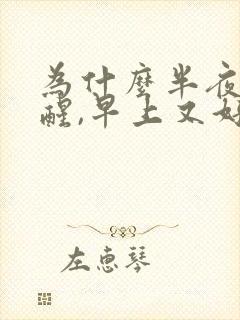 为什麽半夜
醒,早上又好
左惠琴